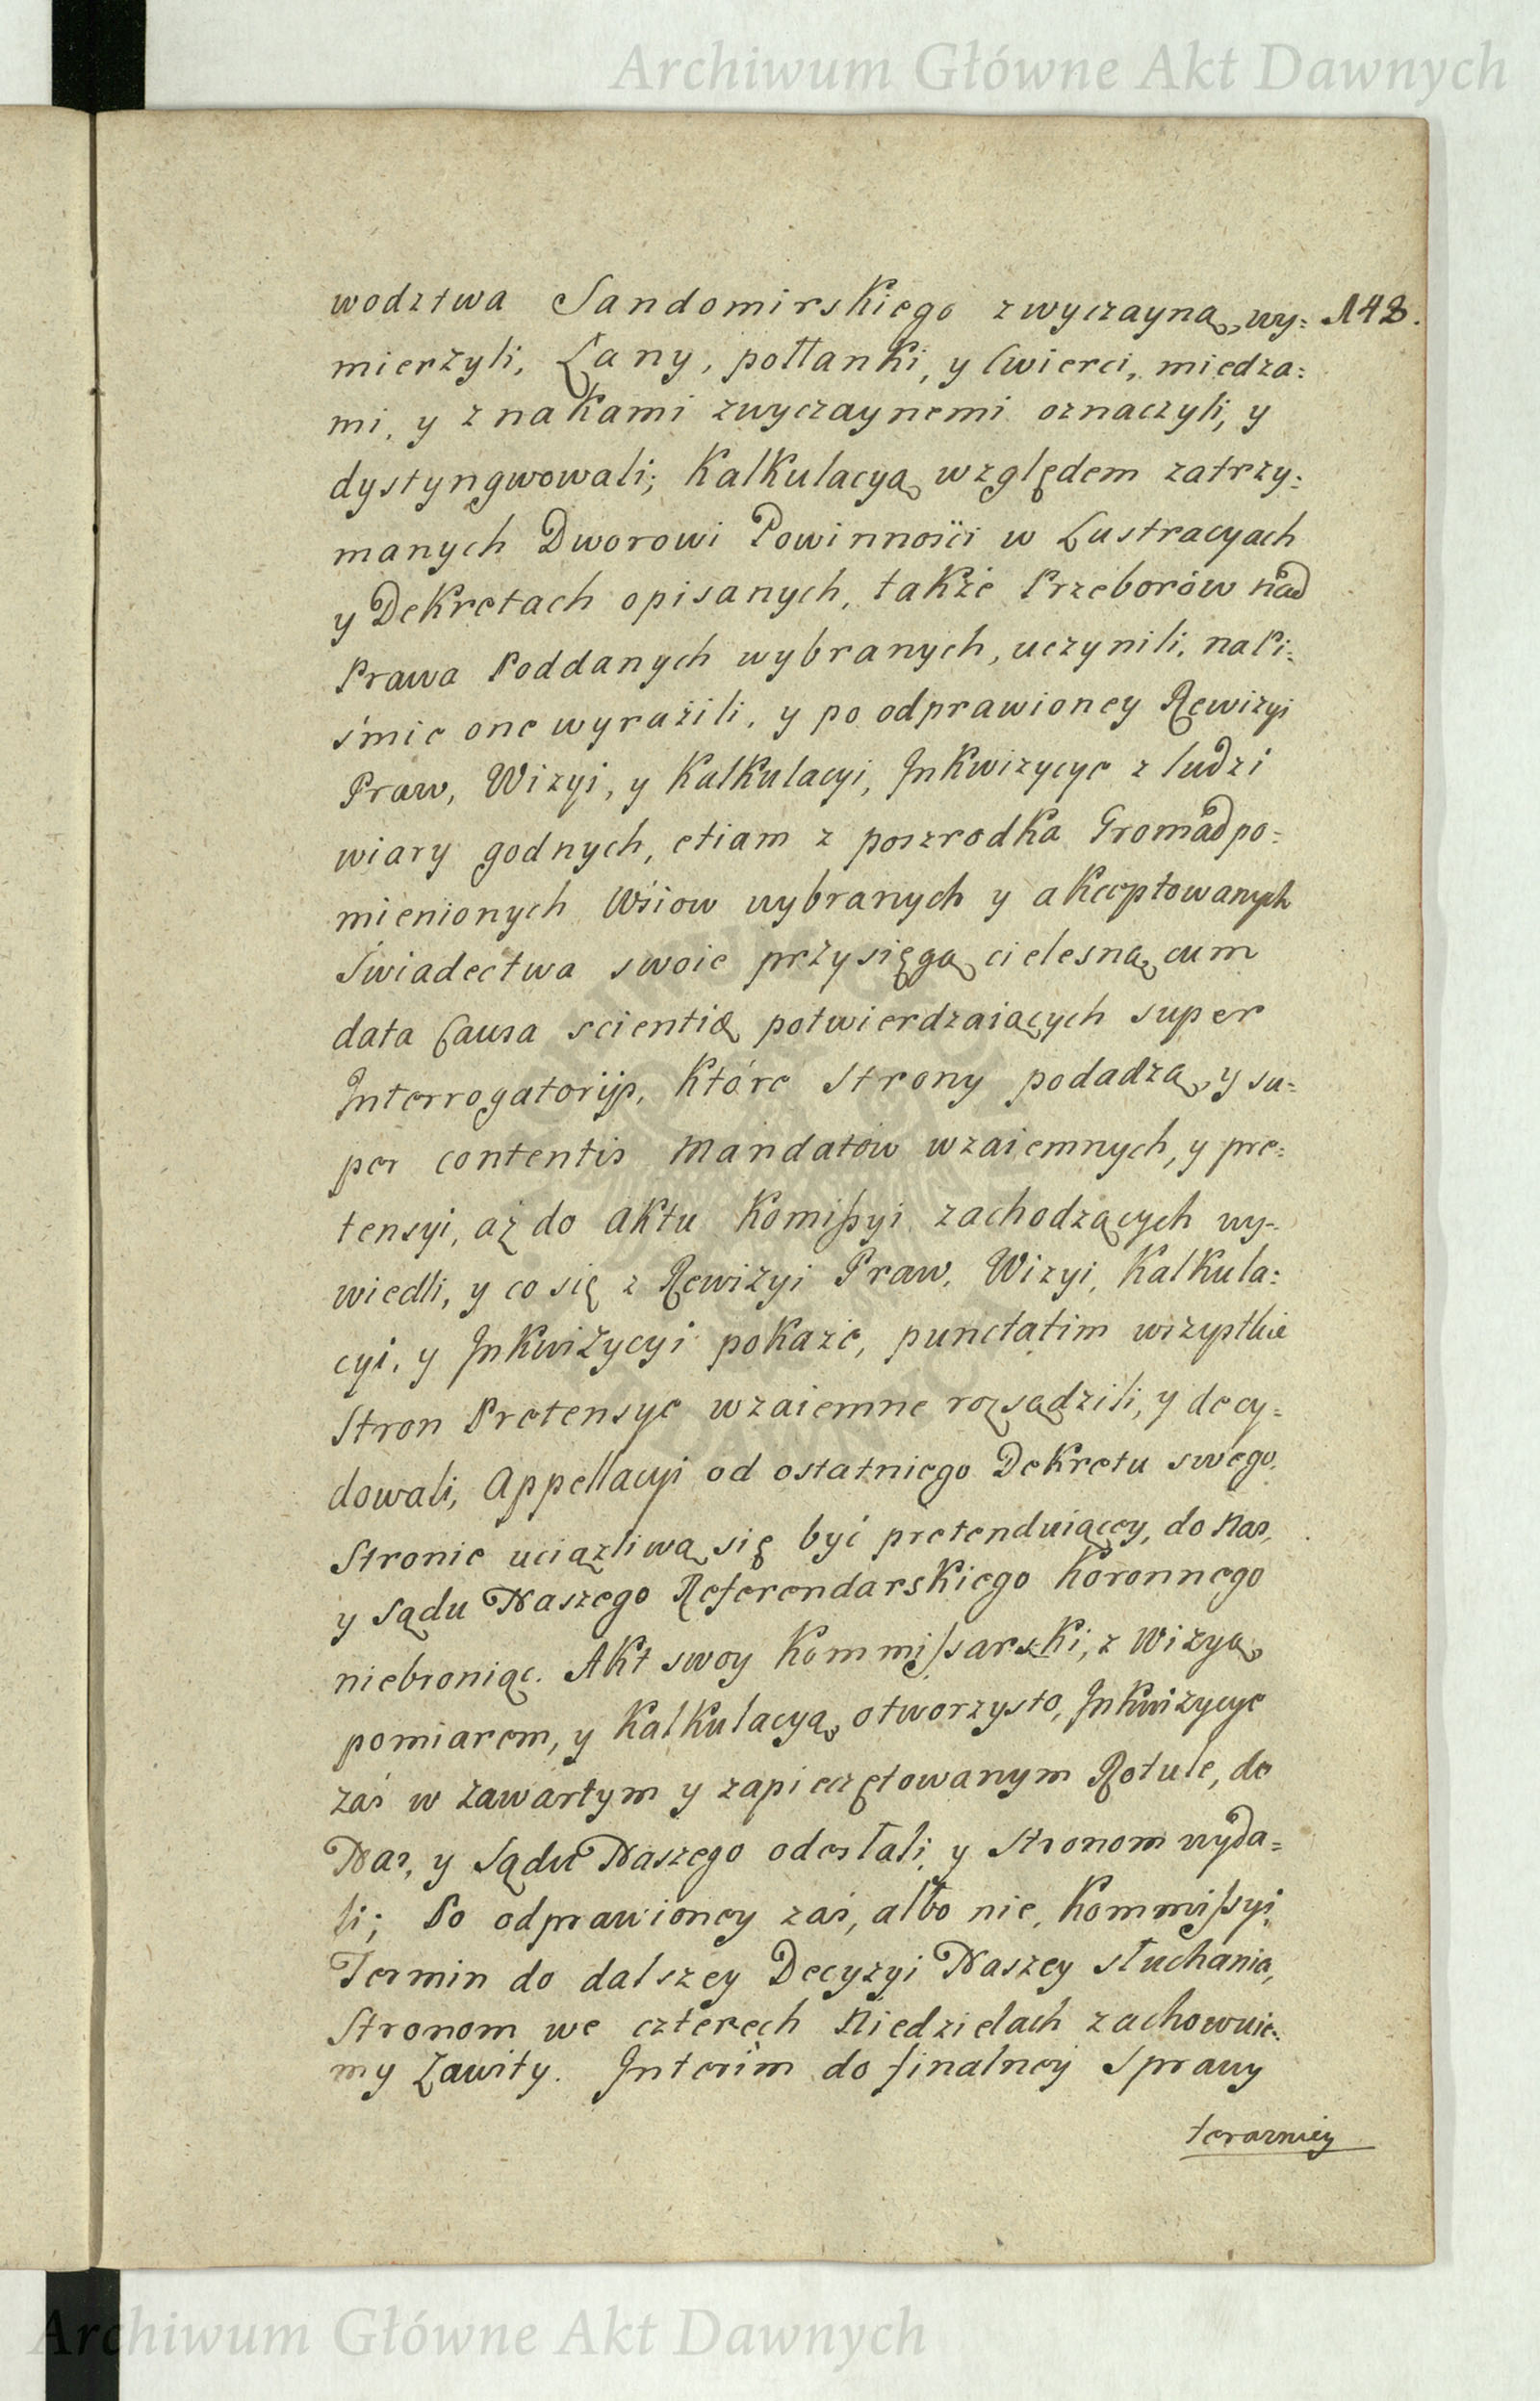 Archiwum Główne Akt Dawnych
wodztwa Sandomirskiego zwyczayną, wy: 148.
mierzyli, Łany, połłanki, y Cwierci, miedza:
mi, y znakami zwyczaynemi oznaczyli, y
dystyngwowali; Kalkulacyą względem zatrzy:
manych Dworowi Powinności w Lustracyach
y Dekretach opisanych, także Przeborów nad
Prawa Poddanych wybranych, uczynili, na Pi:
śmie one wyrazili, y po odprawioney Rewizyi
Praw, Wizyi, y Kalkulacyi, Inkwizycye z ludzi
wiary godnych, etiam z poszrodka Gromad po:
mienionych Wsiow wybranych y akceptowanych
Świadectwa swoie przysięgą cielesną cum
data Causa scientiæ potwierdzaiących super
Interrogatorijs, które Strony podadzą, y su:
per contentis Mandatow wzaiemnych, y pre:
tensyi, aż do aktu Komissyi zachodzących wy:
wiedli, y co się z Rewizyi Praw, Wizyi, Kalkula:
cyi, y Inkwizycyi pokaże, punctatim wszystkie
Stron Pretensye wzaiemne rozsądzili, y decy:
dowali, Appellacyi od ostatniego Dekretu swego,
Stronie uciążliwą się być pretenduiącey, do Nas,
y Sądu Naszego Referendarskiego Koronnego
niebroniąc. Akt swoy Kommissarski, z Wizyą,
pomiarem, y Kalkulacyą otworzysto, Inkwizycye
zaś w zawartym y zapieczętowanym Rotule, do
Nas, y Sądu Naszego odesłali, y Stronom wyda:
li; Po odprawioney zaś, albo nie, Kommissyi,
Termin do dalszey Decyzyi Naszey słuchania,
Stronom we czterech Niedzielach zachowuie:
my Zawity. Interim do finalney Sprawy
terazniey
Archiwum Główne Akt Dawnych